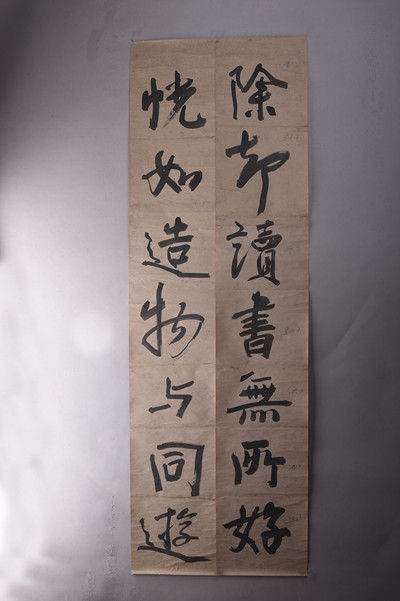 除却讀書無所好
恍如造物与同遊